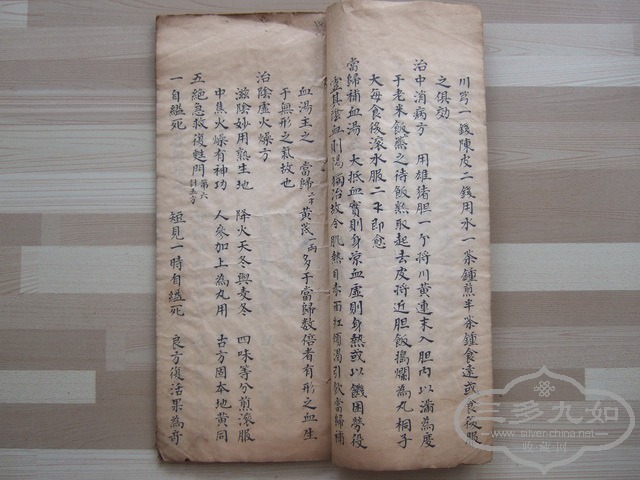 川芎一錢陳皮二錢用水一茶鍾煎半茶鍾食遠或食後服
之俱効
治中消病方 用雄猪胆一个將川黄連末入胆内以滿為度
于老米飯蒸之待飯熟取起去皮將近胆飯搗爛為丸桐子
大每食後滾水服二十即愈
當歸補血湯 大抵血實則身凉血虛則身熱或以饑困勞役
虛其陰血則陽獨治故令肌熱目赤面紅煩渴引飲當歸補
血湯主之 當歸 黄芪一兩 多于當歸数倍者有形之血生
于無形之氣故也
治陰虛火燥方
滋陰妙用熟生地 降火天冬與麦冬 四味等分煎滾服
中焦火燥有神功 人參加上為丸用 古方固本地黄同
五絕急救復甦門 第六 計五方
一自縊死 短見一時自縊死 良方復活果為奇
三多九如